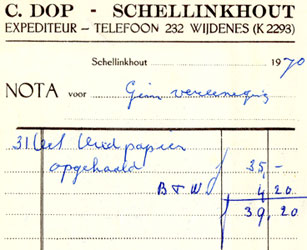 C. DOP - SCHELLINKHOUT
EXPEDITEUR — TELEFOON 232 WIJDENES (K 2293)
Schellinkhout 1970
NOTA voor Gim vereeniging
31 Oct Oud papier
opgehaald 35,-
B T W 4 20
39,20